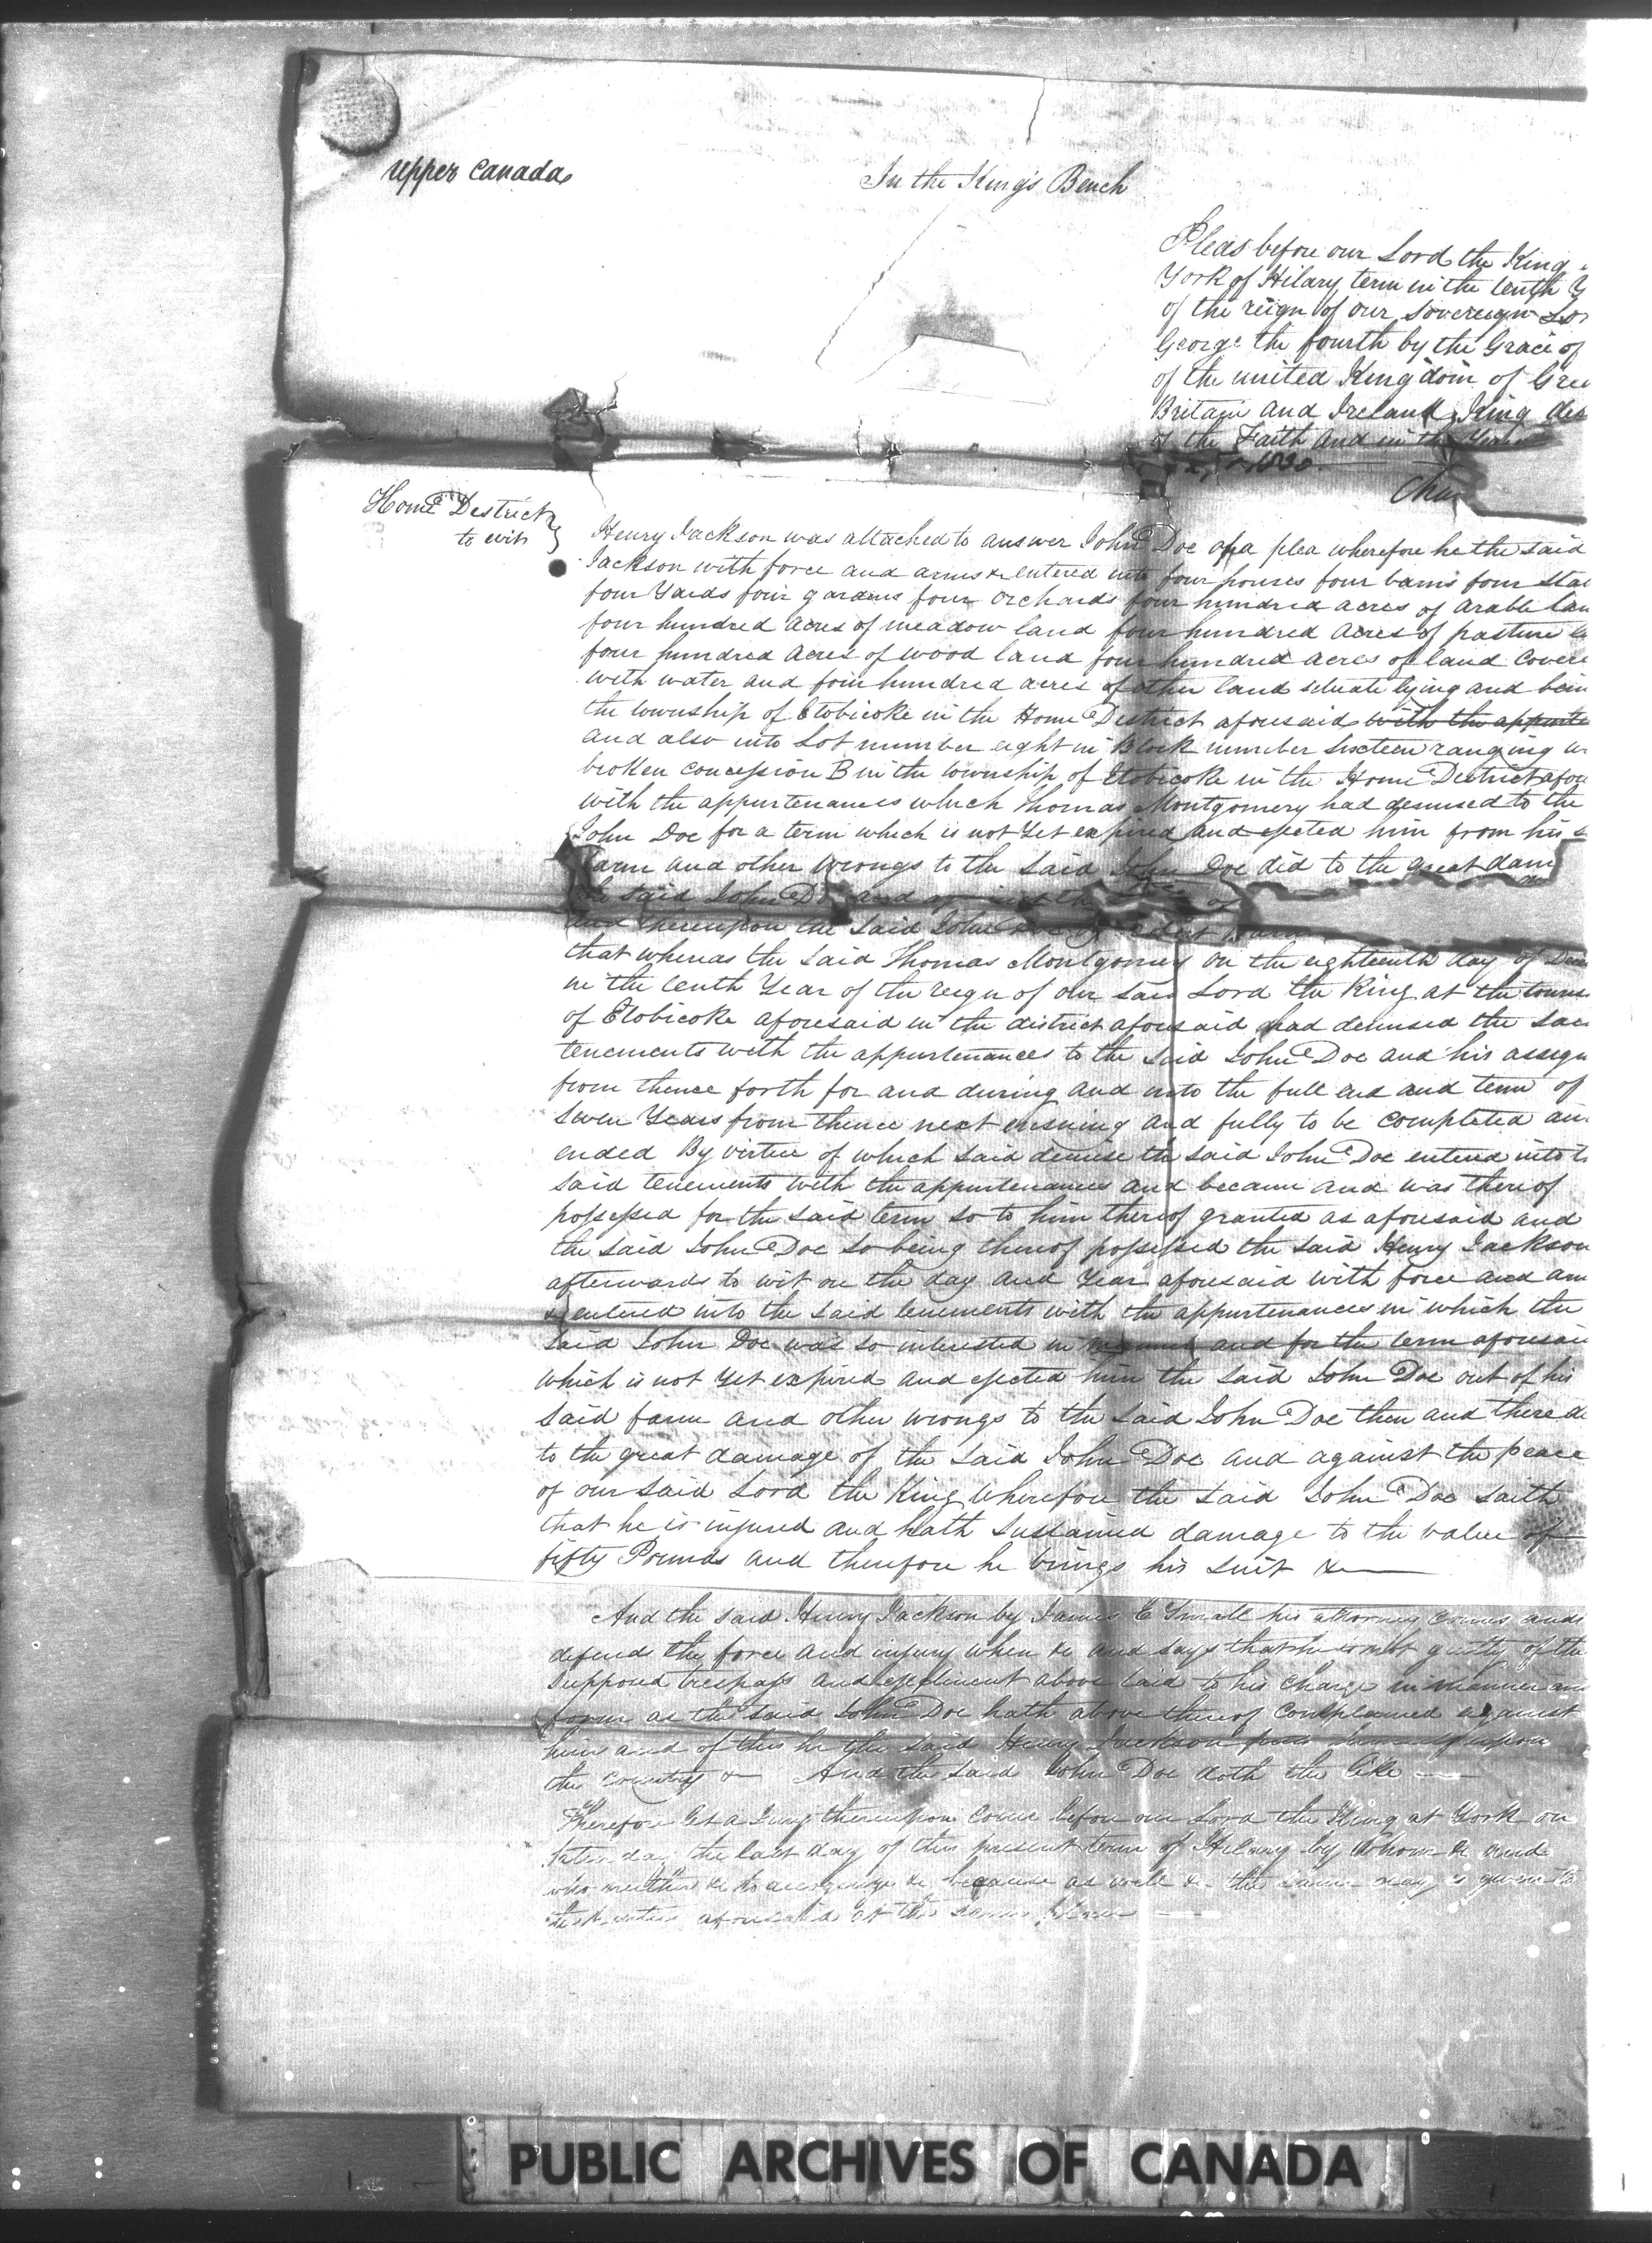 Upper Canada
In the King's Bench
Pleas before our Lord the King
York of Hilary term in the tenth Y
of the reign of our Sovereign Lor
George the fourth by the Grace of
of the united Kingdom of Grea
Britain and Ireland King def
of the Faith and in the Year
1830
Cha
Home District
to wit
Henry Jackson was attached to answer John Doe of a plea wherefore he the said
Jackson with force and arms &c entered into four houses four barns four stab
four Yards four gardens four Orchards four hundred acres of arable lan
four hundred acres of meadow land four hundred acres of pasture la
four hundred acres of wood land four hundred acres of land cover
with water and four hundred acres of other land situate lying and bein
the township of Etobicoke in the Home District aforesaid with the appurte
and also into Lot number eight in Block number sixteen ranging
broken concession B in the township of Etobicoke in the Home District afor
with the appurtenances which Thomas Montgomery had demised to the
John Doe for a term which is not Yet expired and ejected him from his s
farm and other wrongs to the Said John Doe did to the great dam
the said John Doe and against the
and thereupon the said John Doe by
that whereas the said Thomas Montgomery on the eighteenth day of Dece
in the tenth Year of the reign of our said Lord the King at the towns
of Etobicoke aforesaid in the district aforesaid had demised the sai
tenements with the appurtenances to the said John Doe and his assign
from thence forth for and during and unto the full end and term of
seven Years from thence next ensuing and fully to be completed an
ended By virtue of which said demise the said John Doe entered into t
said tenements with the appurtenances and became and was thereof
possessed for the said term so to him thereof granted as aforesaid and
the said John Doe so being thereof possessed the said Henry Jackson
afterwards to wit on the day and Year aforesaid with force and arm
& entered into the said tenements with the appurtenances in which the
said John Doe was so interested in manner and for the term aforesai
which is not yet expired and ejected him the said John Doe out of his
said farm and other wrongs to the said John Doe then and there di
to the great damage of the said John Doe and against the peace
of our said Lord the King Wherefore the said John Doe saith
that he is injured and hath sustained damage to the value of
fifty Pounds and therefore he brings his suit &c
And the said Henry Jackson by James E Small his attorney comes and
defends the force and injury when &c and says that he is not guilty of the
supposed trespass and ejectment above laid to his charge in manner an
form as the said John Doe hath above thereof complained against
him and of this he the said Henry Jackson puts himself upon
the country &c And the said John Doe doth the like
Therefore let a Jury thereupon come before our Lord the King at York on
Saturday the last day of this present term of Hilary by whom &c and
who neither &c to recognize &c because as well &c the same day is given to
the parties aforesaid at the same place
PUBLIC ARCHIVES OF CANADA